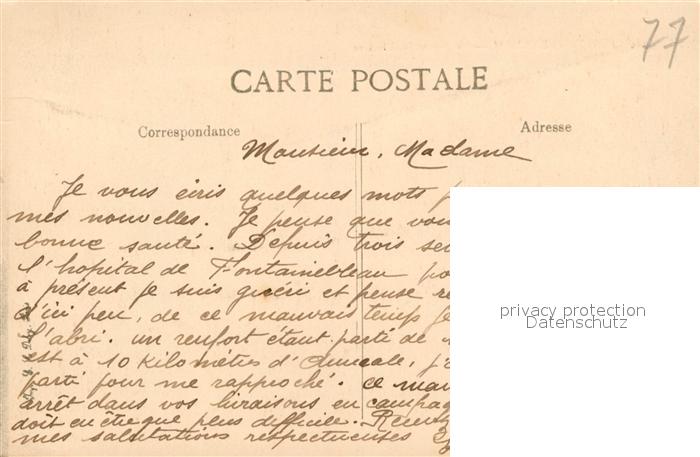 77
CARTE POSTALE
Correspondance
Adresse
Monsieur, Madame
Je vous écris quelques mots p
mes nouvelles. Je pense que vou
bonne santé. Depuis trois se
l'hopital de Fontainebleau po
à présent je suis guéri et pense re
d'ici peu, de ce mauvais temps je
l'abri. un renfort étant parti de
est à 10 Kilomètres d'Aumale, j'
parti pour me rapproché. ce mau
arrêt dans vos livraisons en campag
doit en être que plus difficile. Recev
mes salutations respectueuses
privacy protection
Datenschutz